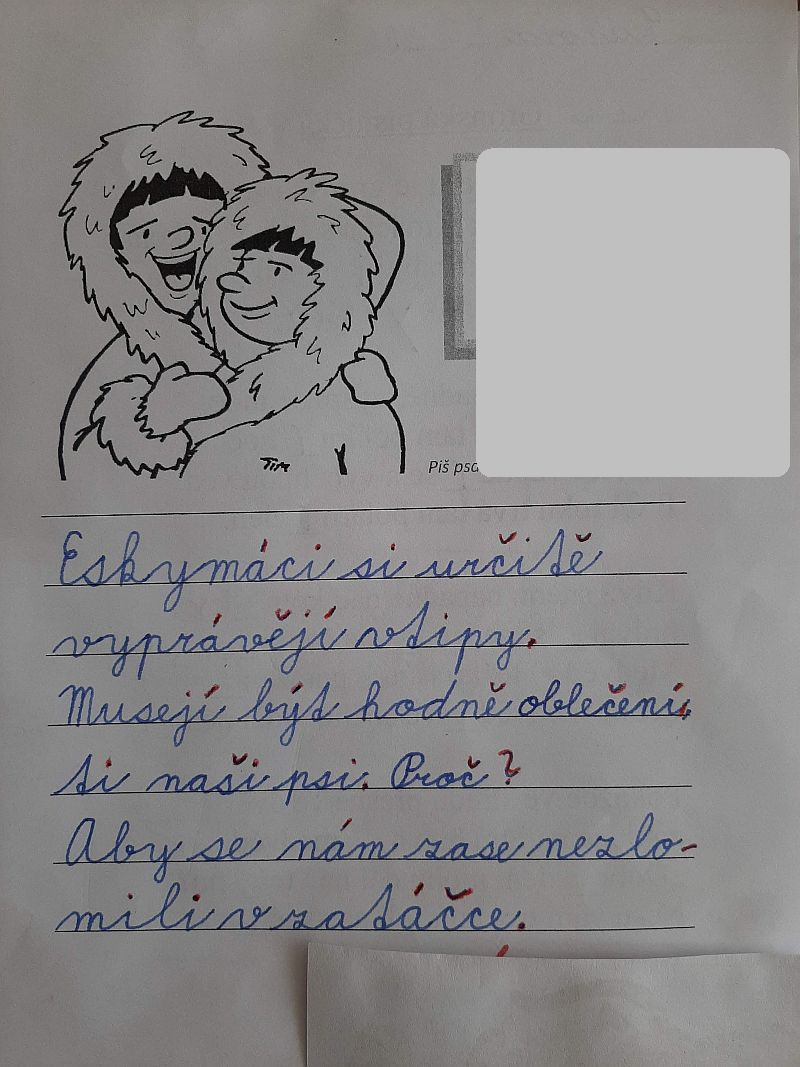 TIM
Piš psa
Eskymáci si určitě
vyprávějí vtipy.
Musejí být hodně oblečeni,
ti naši psi. Proč?
Aby se nám zase nezlo-
mili v zatáčce.